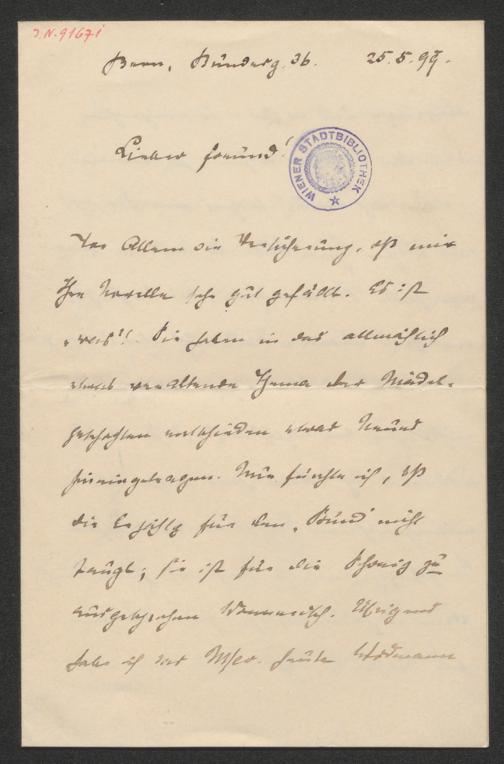 J.N. 91671
Bern, Bündesg. 36. 25.5.99.
Lieber Freund!
WIENER STADTBIBLIOTHEK
Vor Allem die Versicherung, daß mir
Ihre Novelle sehr gut gefällt. Es ist
"was"! Sie haben in das allmählich
etwas veraltende Thema der Mädel-
geschichten entschieden etwas Neues
hineingetragen. Nur fürchte ich, daß
die Erzählg für den "Bund" nicht
taugt; sie ist für die Schweiz zu
ausgesprochen Wienerisch. Übrigens
habe ich das Mscr. heute Widmann